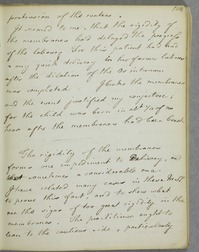 protrusion of the waters.
It seemed to me, that the rigidity of
the membranes had delayed the progress
of the labour for this patient had had
a very quick delivery in two former labours
after the dilation of the Os internum
was completed. I broke the membranes
and the event justified my conjecture,
for the child was born in about ¼ of an
hour after the membranes had been broke
The rigidity of the membranes
forms one impediment to Delivery, and
sometimes a considerable one.
I have related many cases in these
to prove this fact, and to shew what
are the signs of too great rigidity in the
membranes. The practitioner ought to
lean to the cautious side, & particularly